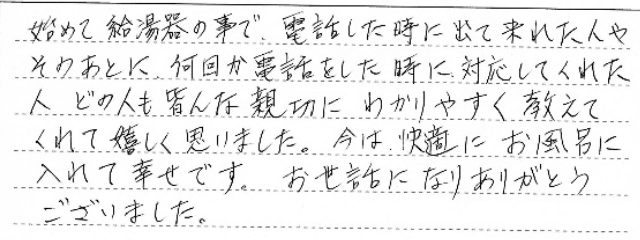 始めて給湯器の事で、電話した時に出て来れた人や
そのあとに、何回か電話をした時に、対応してくれた
人 どの人も皆んな親切に わかりやすく教えて
くれて嬉しく思いました。今は、快適に お風呂に
入れて幸せです。 お世話になりありがとう
ございました。